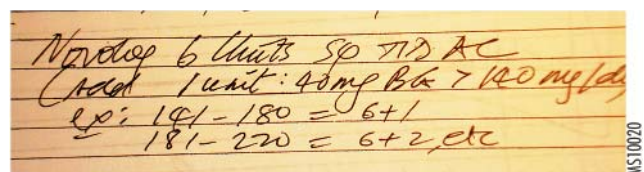 Novolog 6 Units SQ TID AC
(Add 1 unit: 40mg BG > 140 mg/dL
ex: 141-180 = 6+1
181-220 = 6+2, etc
MS10020